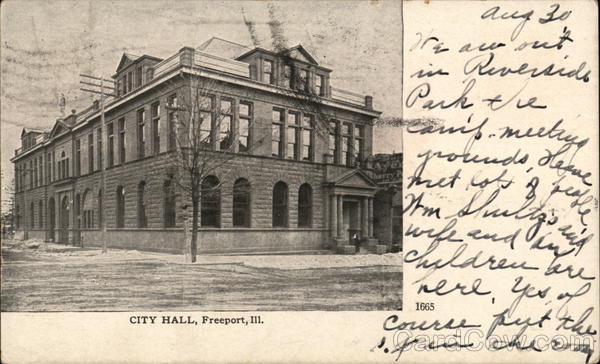 Aug 30
We are out
in Riverside
Park the
camp-meeting
grounds, Have
met lots of people
Wm Shultz's and
wife and
children are
here, Yes, of
course put the
1665
CITY HALL, Freeport, Ill.
CardCow.com